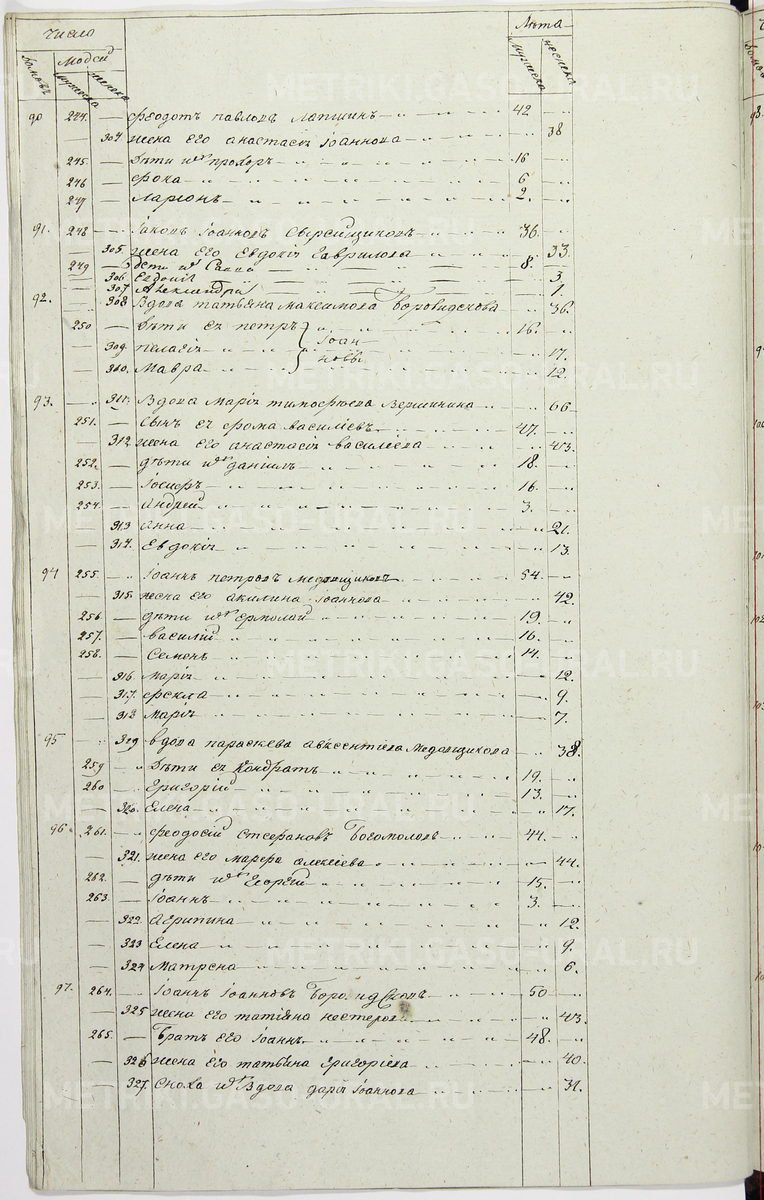 Число Лѣта
Домовъ Людей мужеска женска мужеска женска
90 244. — Феодотъ Павловъ Лапшинъ 42
304 жена его Анастасія Іоаннова 38
245. Дѣти ихъ Прохоръ 16
246 Фока 6
247 Ларіонъ 2.
91. 248 Іаковъ Іоанновъ 36.
305. жена его Евдокія Гаврилова 33.
249 дѣти ихъ Савва 8.
306 3.
307 Александра 1.
92. 308 Вдова Татьяна Максимова Боровидскова 36.
250 Дѣти ея Петръ 16.
Іоан
309. Пелагія 17.
новы
310. Мавра 12.
93. 311. Вдова Марія Тимофѣева Вершинина 66
251. Сынъ ея Фома Василіевъ 47.
312 жена его Анастасія Василіева 43.
252. дѣти ихъ Даніилъ 18.
253. Іосифъ 16.
254. Андрей 3.
313 Анна 21.
314. Евдокія 13.
94 255. Іоаннъ Петровъ 54.
315. жена его Акилина Іоаннова 42.
256. дѣти ихъ Ермолай 19.
257. Василій 16.
258. Семенъ 14.
316. Марія 12.
317. Фекла 9.
318 Марія 7.
95 319 вдова Параскева Авксентіева 38.
259 Дѣти ея Кондратъ 19.
260 Григорій 13.
320. Елена 17.
96. 261. Феодосій Стефановъ Богомоловъ 44.
321. жена его Марфа Алексіева 44.
262. дѣти ихъ Георгій 15.
263. Іоаннъ 3.
322. Агрипина 12.
323 Елена 9.
324 Матрена 6.
97. 264. Іоаннъ Іоанновъ 50
325 жена его Татіана Нестерова 43.
265. Братъ его Іоаннъ 48.
326 жена его Татьяна Григоріева 40.
327. Сноха ихъ Вдова Дарія Іоаннова 31.
METRIKI.GASO-URAL.RU